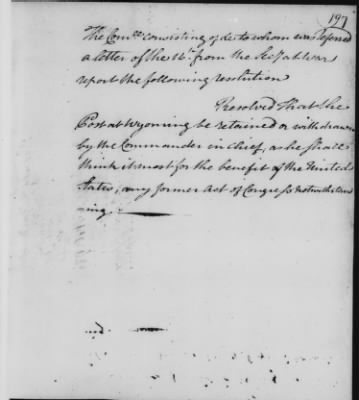 197
The Comee consisting of &c to whom was referred
a letter of the 11t from the Secy at War
report the following resolution
Resolved That the
Post at Wyoming be retained or withdrawn
by the Commander in chief, as he shall
think it most for the benefit of the United
States, any former Act of Congress notwithstand
ing.